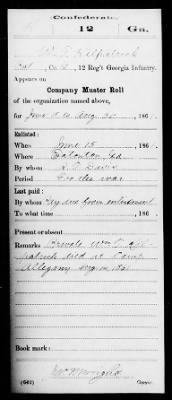 Confederate.
12 Ga.
Wm T. Kilpatrick
Co. , 12 Reg't Georgia Infantry.
Appears on
Company Muster Roll
of the organization named above,
for June 15 to Aug 31, 186 .
Enlisted:
When June 15, 186 .
Where Eatonton, Ga
By whom R. T. Davis
Period For the war
Last paid:
By whom
To what time , 186 .
Present or absent
Remarks: Private Wm T. Kil-
patrick died at Camp
Allegany Aug 1861
Book mark:
(642) Copyist.